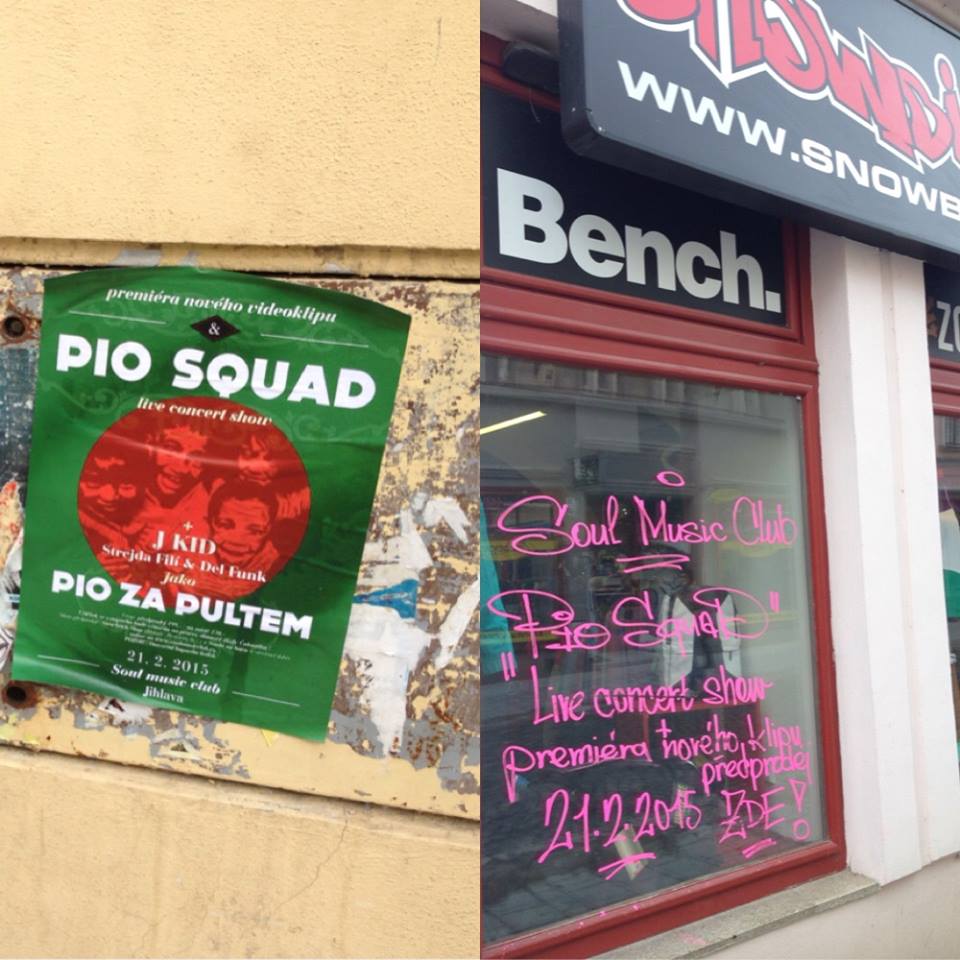 premiéra nového videoklipu
&
PIO SQUAD
live concert show
+
J KID
Strejda Fílí & Del Funk
Jako
PIO ZA PULTEM
21. 2. 2015
Soul music club
Jihlava
WWW.SNOWB
Bench.
Soul Music Club
"Pio Squad"
Live concert show
+
premiéra nového klipu
předprodej
21.2.2015 ZDE!